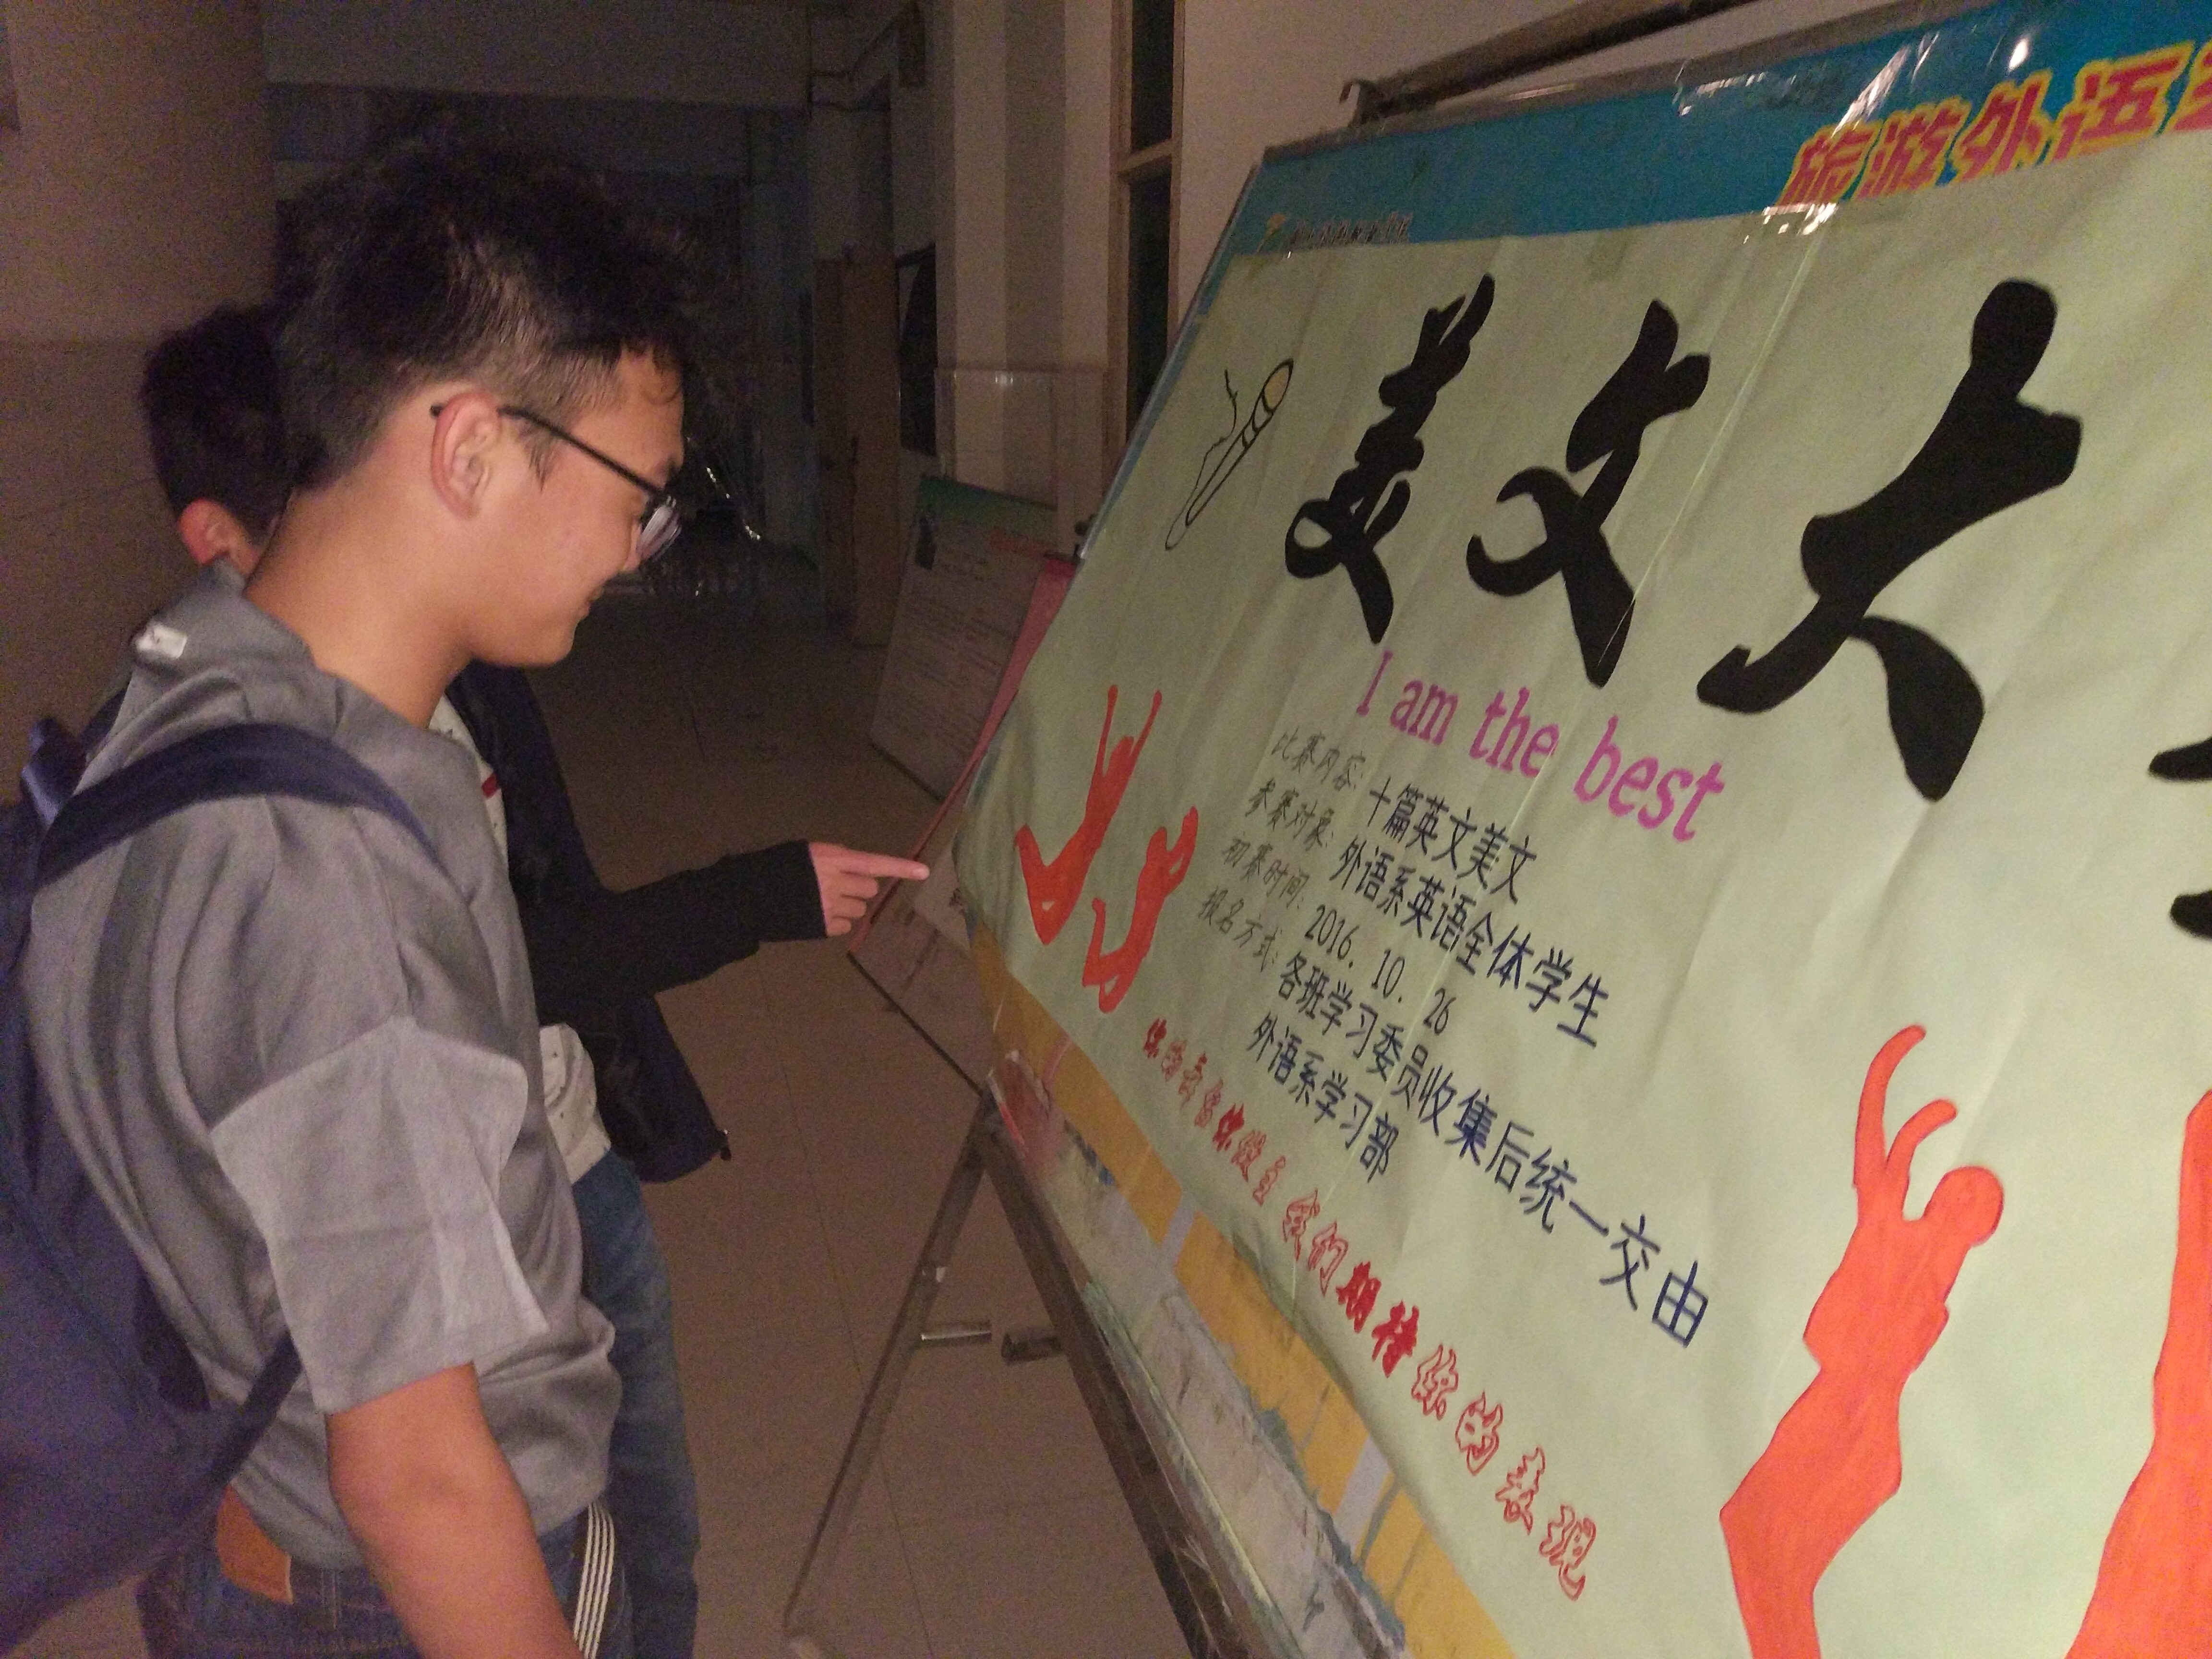 旅游外语
美文大
I am the best
比赛内容: 十篇英文美文
参赛对象: 外语系英语全体学生
初赛时间: 2016. 10. 26
报名方式: 各班学习委员收集后统一交由
外语系学习部
你的青春你做主 我们期待你的表现